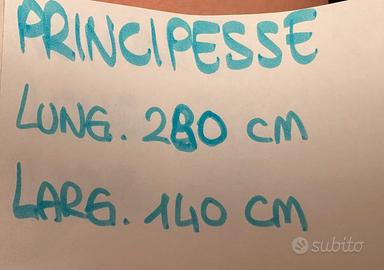 PRINCIPESSE
LUNG. 280 CM
LARG. 140 CM
subito